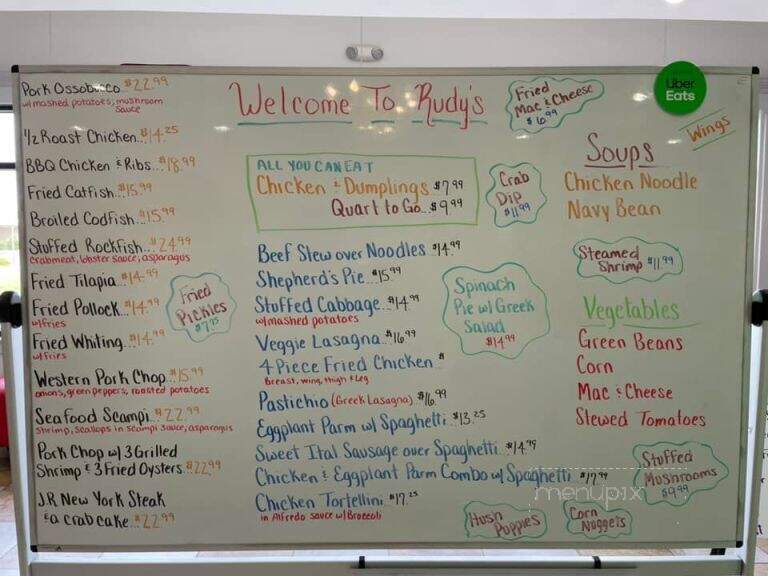 Welcome To Rudy's
Pork Ossobucco..$22.99
w/mashed potatoes, mushroom
sauce
1/2 Roast Chicken..$14.25
BBQ Chicken & Ribs...$18.99
Fried Catfish...$15.99
Broiled Codfish...$15.99
Stuffed Rockfish...$24.99
crabmeat, lobster sauce, asparagus
Fried Tilapia...$14.99
Fried Pollock..$14.99
w/fries
Fried Whiting...$14.99
w/fries
Western Pork Chop...$15.99
onions, green peppers, roasted potatoes
Seafood Scampi..$22.99
shrimp, scallops in scampi sauce, asparagus
Pork Chop w/ 3 Grilled
Shrimp & 3 Fried Oysters..$22.99
J.R New York Steak
& a crab cake..$22.99
Fried
Pickles
$7.95
ALL YOU CAN EAT
Chicken & Dumplings $7.99
Quart to Go...$9.99
Beef Stew over Noodles $14.99
Shepherd's Pie..$15.99
Stuffed Cabbage...$14.99
w/mashed potatoes
Veggie Lasagna..$16.99
4 Piece Fried Chicken $
Breast, wing, thigh & Leg
Pastichio (Greek Lasagna) $16.99
Eggplant Parm w/ Spaghetti..$13.25
Sweet Ital Sausage over Spaghetti..$14.99
Chicken & Eggplant Parm Combo w/ Spaghetti $17.99
Chicken Tortellini..$17.25
in Alfredo sauce w/Broccoli
Fried
Mac & Cheese
$6.99
Crab
Dip
$11.99
Spinach
Pie w/ Greek
Salad
$14.99
Hush
Puppies
Corn
Nuggets
Uber
Eats
Wings
Soups
Chicken Noodle
Navy Bean
Steamed
Shrimp $11.99
Vegetables
Green Beans
Corn
Mac & Cheese
Stewed Tomatoes
Stuffed
Mushrooms
$9.99
menupix